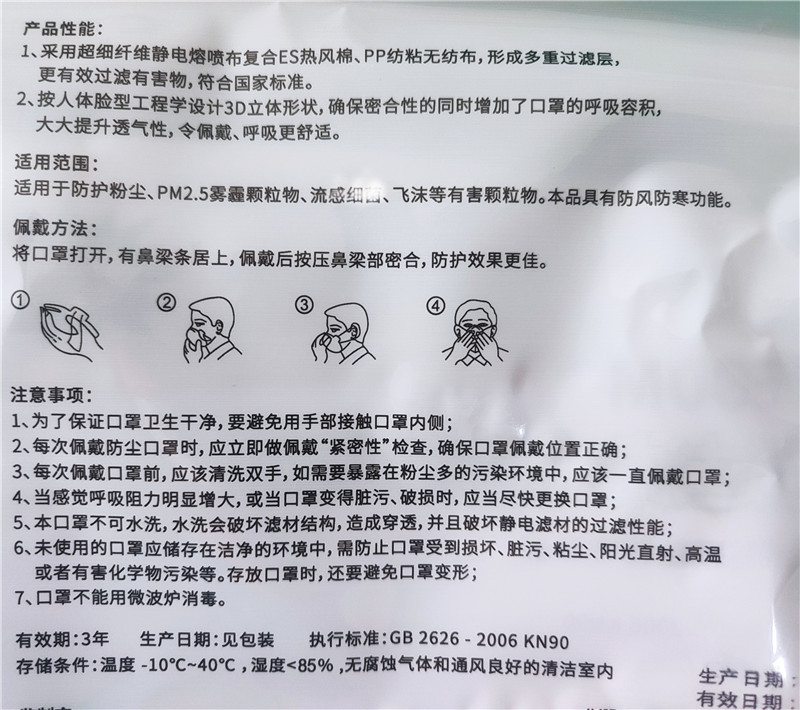 产品性能：
1、采用超细纤维静电熔喷布复合ES热风棉、PP纺粘无纺布，形成多重过滤层，
更有效过滤有害物，符合国家标准。
2、按人体脸型工程学设计3D立体形状，确保密合性的同时增加了口罩的呼吸容积，
大大提升透气性，令佩戴、呼吸更舒适。
适用范围：
适用于防护粉尘、PM2.5雾霾颗粒物、流感细菌、飞沫等有害颗粒物。本品具有防风防寒功能。
佩戴方法：
将口罩打开，有鼻梁条居上，佩戴后按压鼻梁部密合，防护效果更佳。
① ② ③ ④
注意事项：
1、为了保证口罩卫生干净，要避免用手部接触口罩内侧；
2、每次佩戴防尘口罩时，应立即做佩戴“紧密性”检查，确保口罩佩戴位置正确；
3、每次佩戴口罩前，应该清洗双手，如需要暴露在粉尘多的污染环境中，应该一直佩戴口罩；
4、当感觉呼吸阻力明显增大，或当口罩变得脏污、破损时，应当尽快更换口罩；
5、本口罩不可水洗，水洗会破坏滤材结构，造成穿透，并且破坏静电滤材的过滤性能；
6、未使用的口罩应储存在洁净的环境中，需防止口罩受到损坏、脏污、粘尘、阳光直射、高温
或者有害化学物污染等。存放口罩时，还要避免口罩变形；
7、口罩不能用微波炉消毒。
有效期：3年 生产日期：见包装 执行标准：GB 2626 - 2006 KN90
存储条件：温度 -10℃~40℃，湿度<85%，无腐蚀气体和通风良好的清洁室内
生产日期：
有效日期：